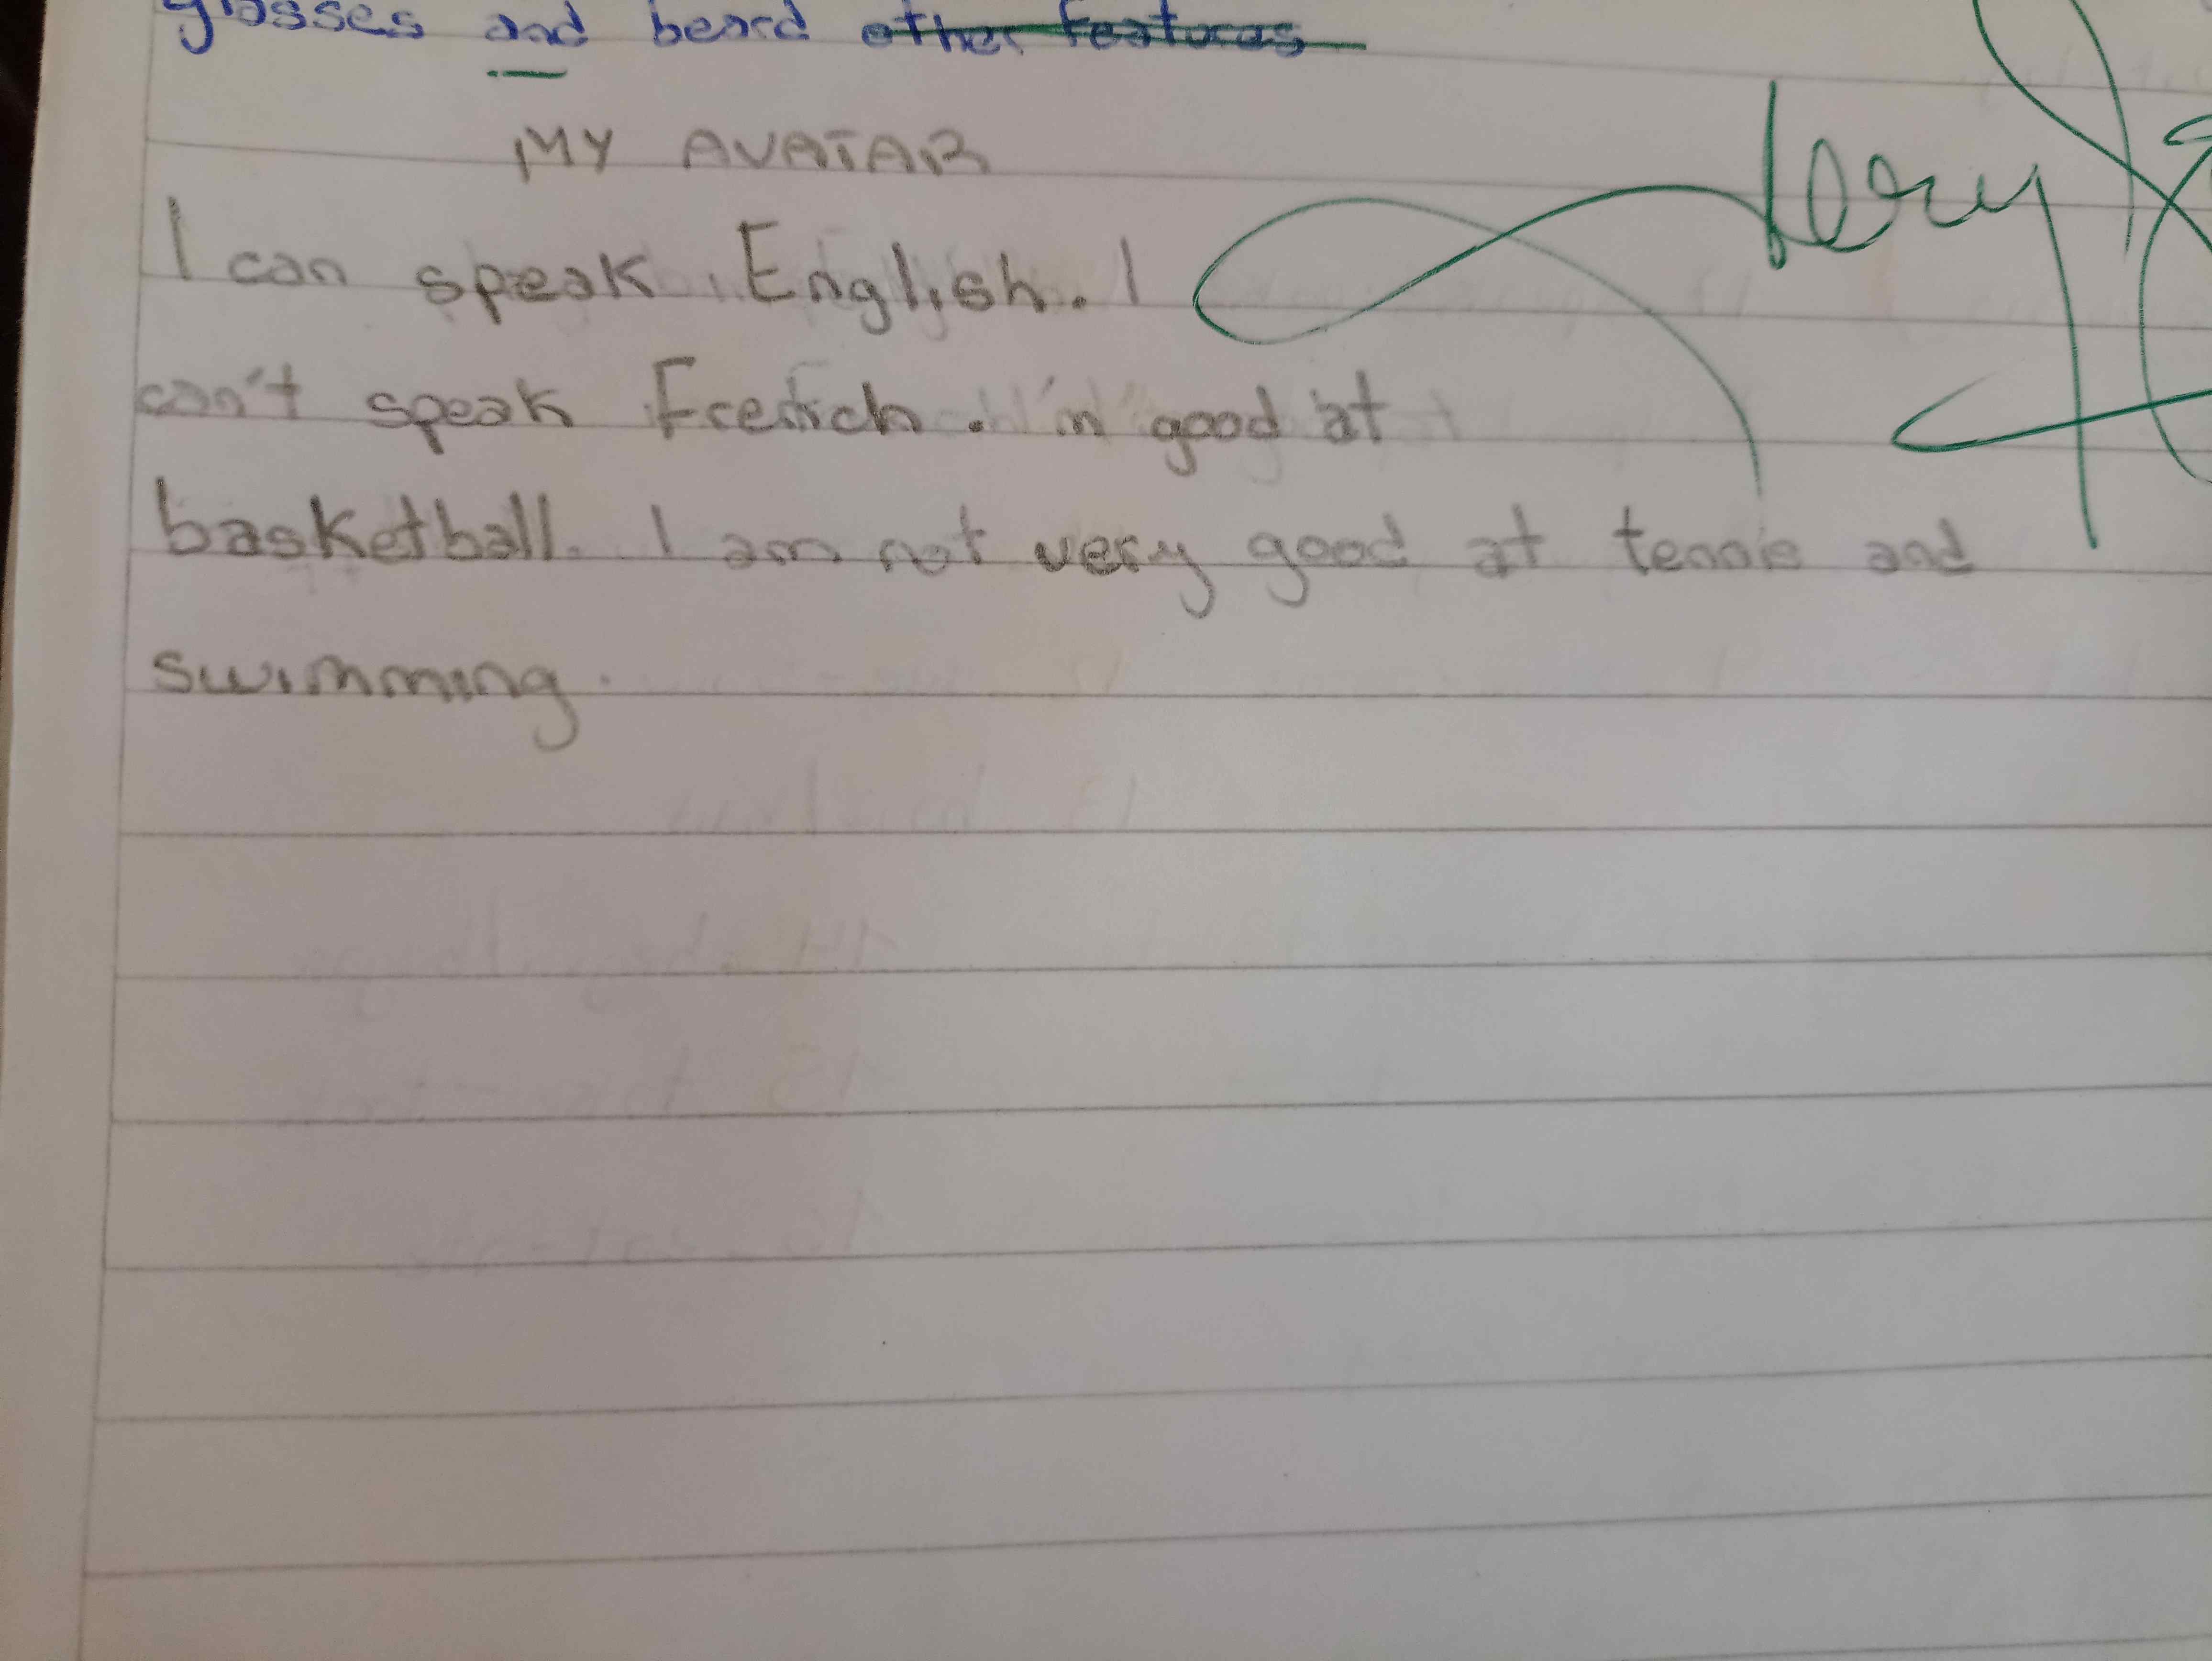 glasses and beard other features
MY AVATAR
I can speak English. I
can't speak French. I'm good at
basketball. I am not very good at tennis and
swimming.
Very